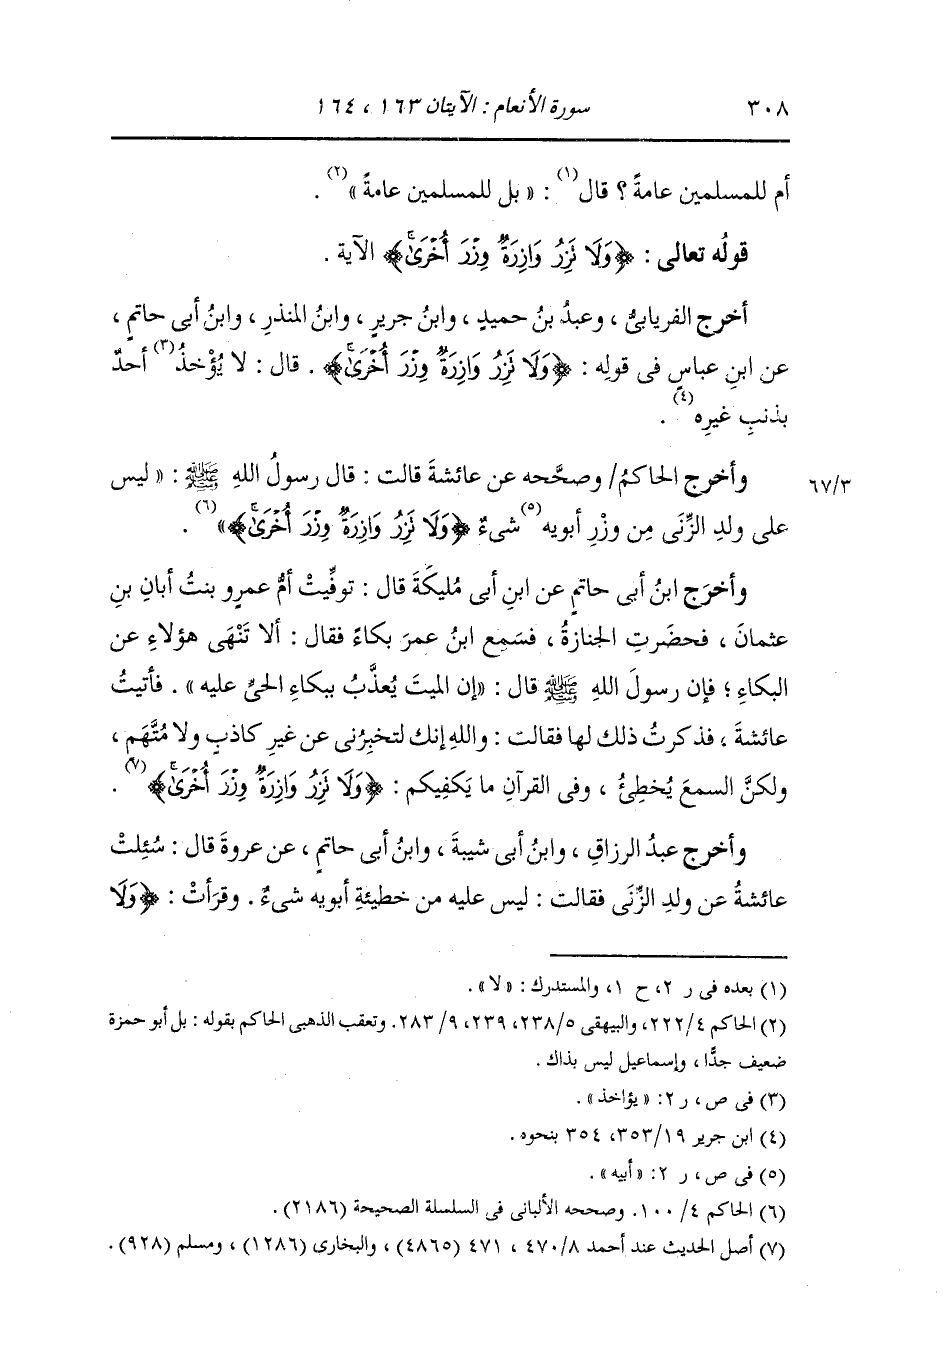 ٣٠٨ سورة الأنعام : الآيتان ١٦٣ ، ١٦٤
أم للمسلمين عامةً ؟ قال(١) : « بل للمسلمين عامةً »(٢) .
قولُه تعالى : ﴿وَلَا نَزِرُ وَازِرَةٌ وِزْرَ أُخْرَىٰ﴾ الآية .
أخرج الفريابىُّ ، وعبدُ بنُ حميدٍ ، وابنُ جريرٍ ، وابنُ المنذرِ ، وابنُ أبى حاتمٍ ،
عن ابنِ عباسٍ فى قولِه : ﴿وَلَا نَزِرُ وَازِرَةٌ وِزْرَ أُخْرَىٰ﴾ . قال : لا يُؤْخذُ(٣) أحدٌ
بذنبِ غيرِه(٤) .
وأخرج الحاكمُ/ وصحَّحه عن عائشةَ قالت : قال رسولُ اللهِ ﷺ : « ليس ٦٧/٣
على ولدِ الزِّنَى مِن وزْرِ أبويه(٥) شىءٌ ﴿وَلَا نَزِرُ وَازِرَةٌ وِزْرَ أُخْرَىٰ﴾»(٦) .
وأخرَج ابنُ أبى حاتمٍ عن ابنِ أبى مُليكَةَ قال : توفِّيتْ أمُّ عمرٍو بنتُ أبانِ بنِ
عثمانَ ، فحضَرتِ الجنازةُ ، فسَمِع ابنُ عمرَ بكاءً فقال : ألا تَنْهَى هؤلاءِ عن
البكاءِ ؛ فإن رسولَ اللهِ ﷺ قال : «إن الميتَ يُعذَّبُ ببكاءِ الحىِّ عليه» . فأتيتُ
عائشةَ ، فذكرتُ ذلك لها فقالت : واللهِ إنك لتخبِرُنى عن غيرِ كاذبٍ ولا مُتَّهَمٍ ،
ولكنَّ السمعَ يُخطِئُ ، وفى القرآنِ ما يَكفِيكم : ﴿وَلَا نَزِرُ وَازِرَةٌ وِزْرَ أُخْرَىٰ﴾(٧) .
وأخرج عبدُ الرزاقِ ، وابنُ أبى شيبةَ ، وابنُ أبى حاتمٍ ، عن عروةَ قال : سُئِلتْ
عائشةُ عن ولدِ الزِّنَى فقالت : ليس عليه من خطيئةِ أبويه شىءٌ . وقرَأتْ : ﴿وَلَا
(١) بعده فى ر ٢، ح ١، والمستدرك : «لا» .
(٢) الحاكم ٢٢٢/٤، والبيهقى ٢٣٨/٥، ٢٣٩، ٩/ ٢٨٣. وتعقب الذهبى الحاكم بقوله : بل أبو حمزة
ضعيف جدًّا ، وإسماعيل ليس بذاك .
(٣) فى ص ، ر ٢: « يؤاخذ» .
(٤) ابن جرير ٣٥٣/١٩، ٣٥٤ بنحوه .
(٥) فى ص ، ر ٢: «أبيه» .
(٦) الحاكم ٤/ ١٠٠. وصححه الألبانى فى السلسلة الصحيحة (٢١٨٦) .
(٧) أصل الحديث عند أحمد ٤٧٠/٨ ، ٤٧١ (٤٨٦٥) ، والبخارى (١٢٨٦) ، ومسلم (٩٢٨) .